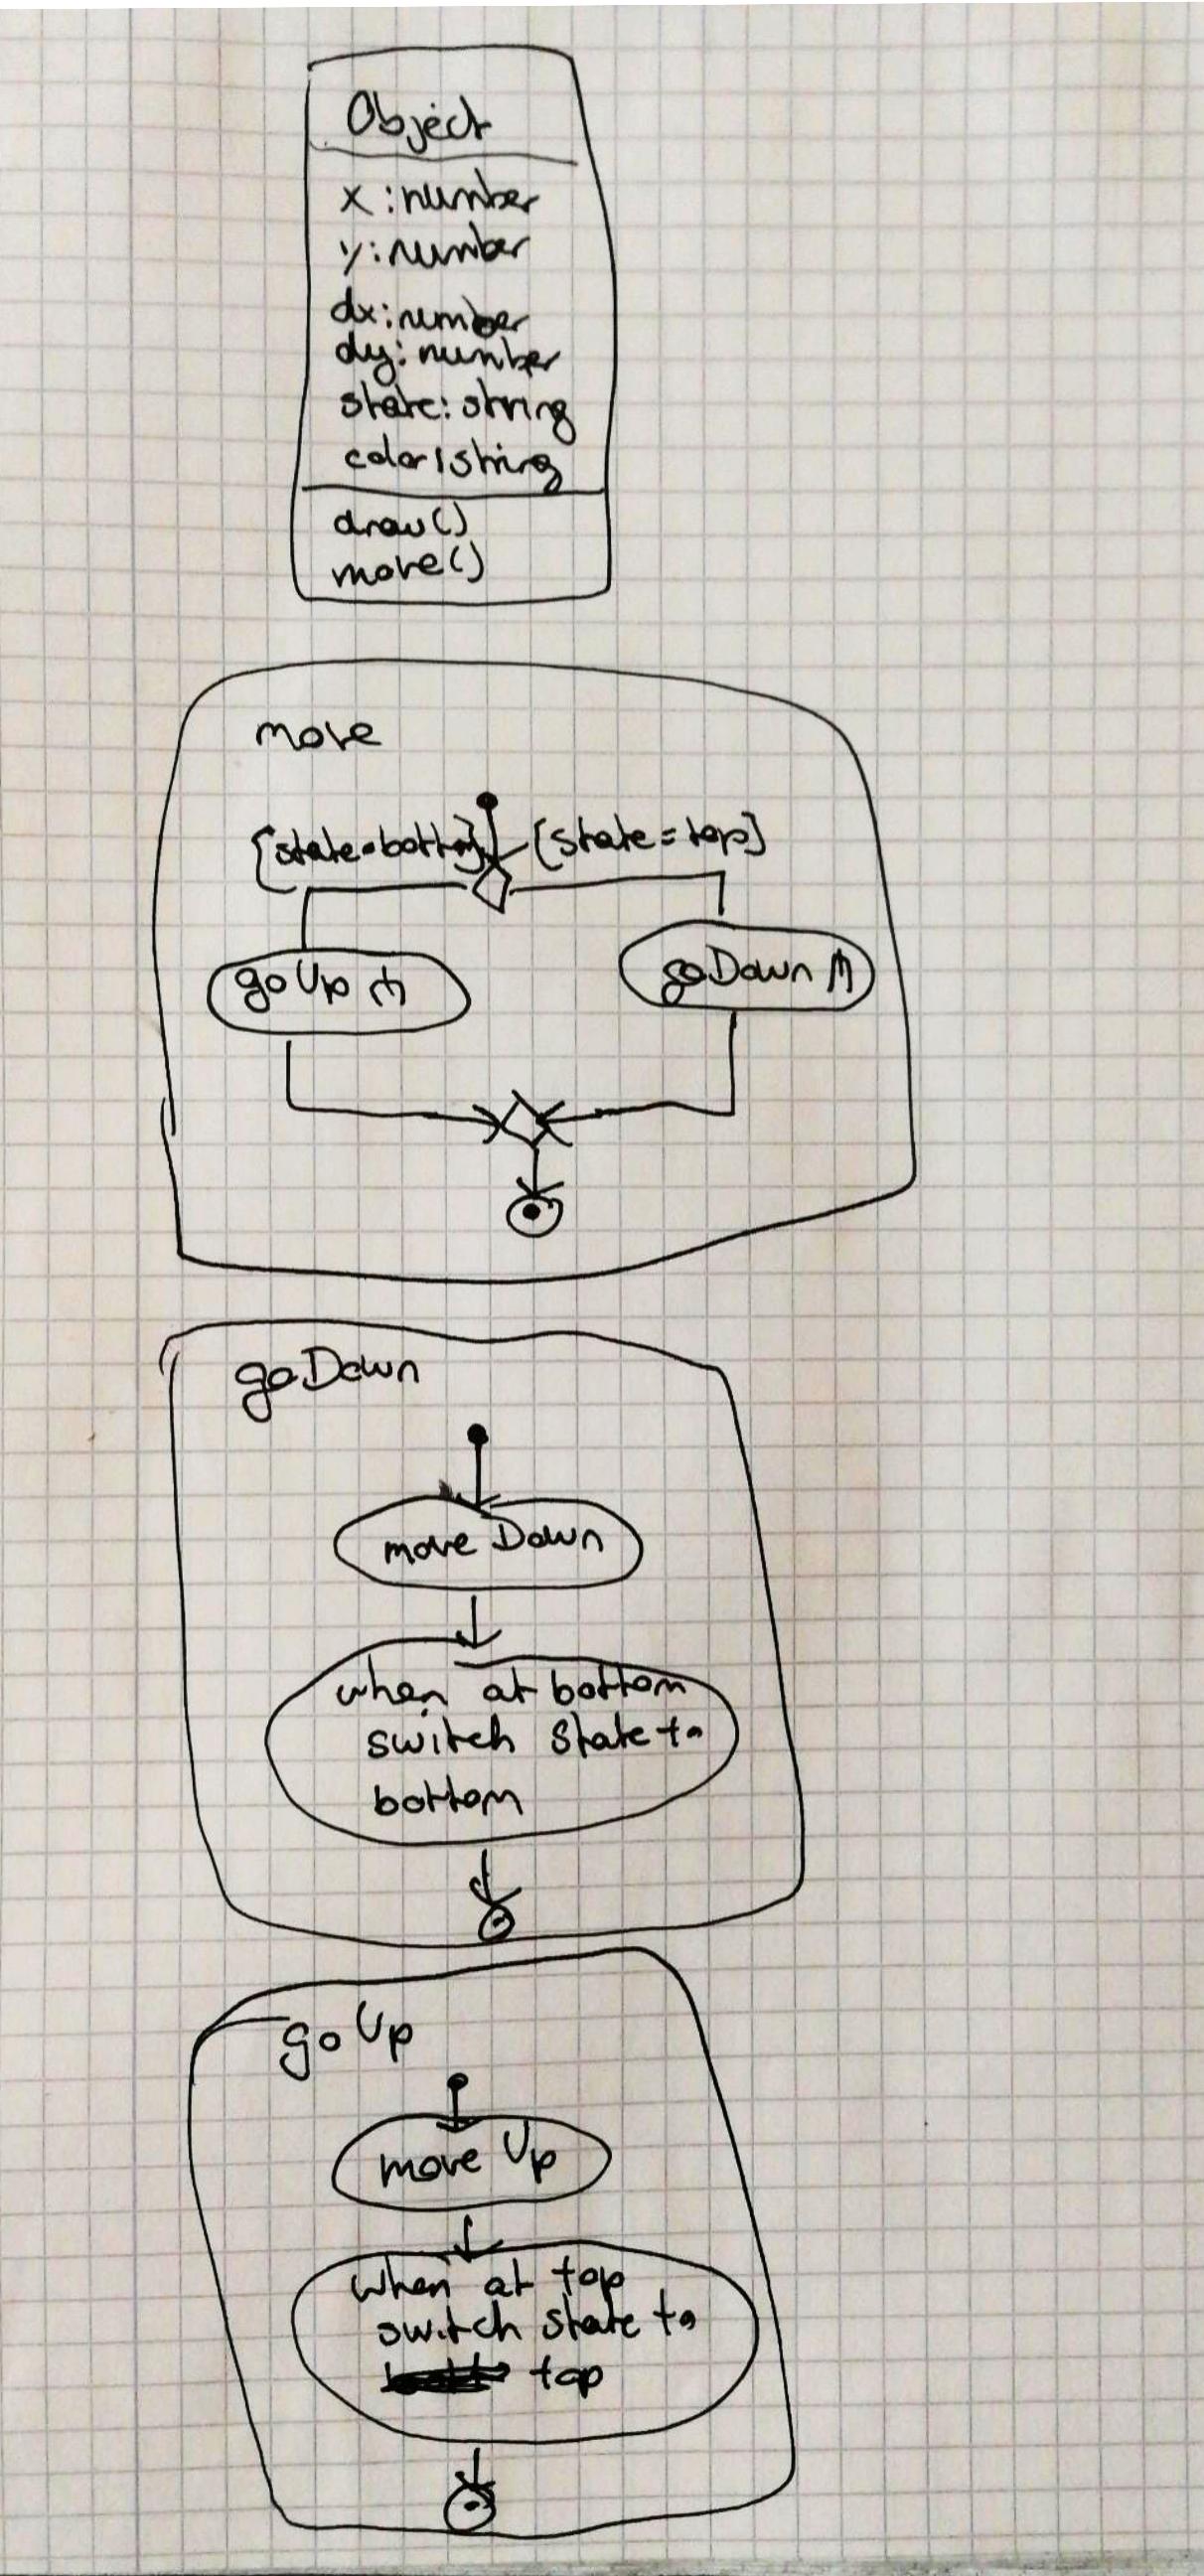 Object
x : number
y : number
dx : number
dy : number
state : string
color : string
draw()
move()
move
{state=bottom} [state = top]
goUp goDown
goDown
move Down
when at bottom
switch state to
bottom
goUp
move Up
when at top
switch state to
top